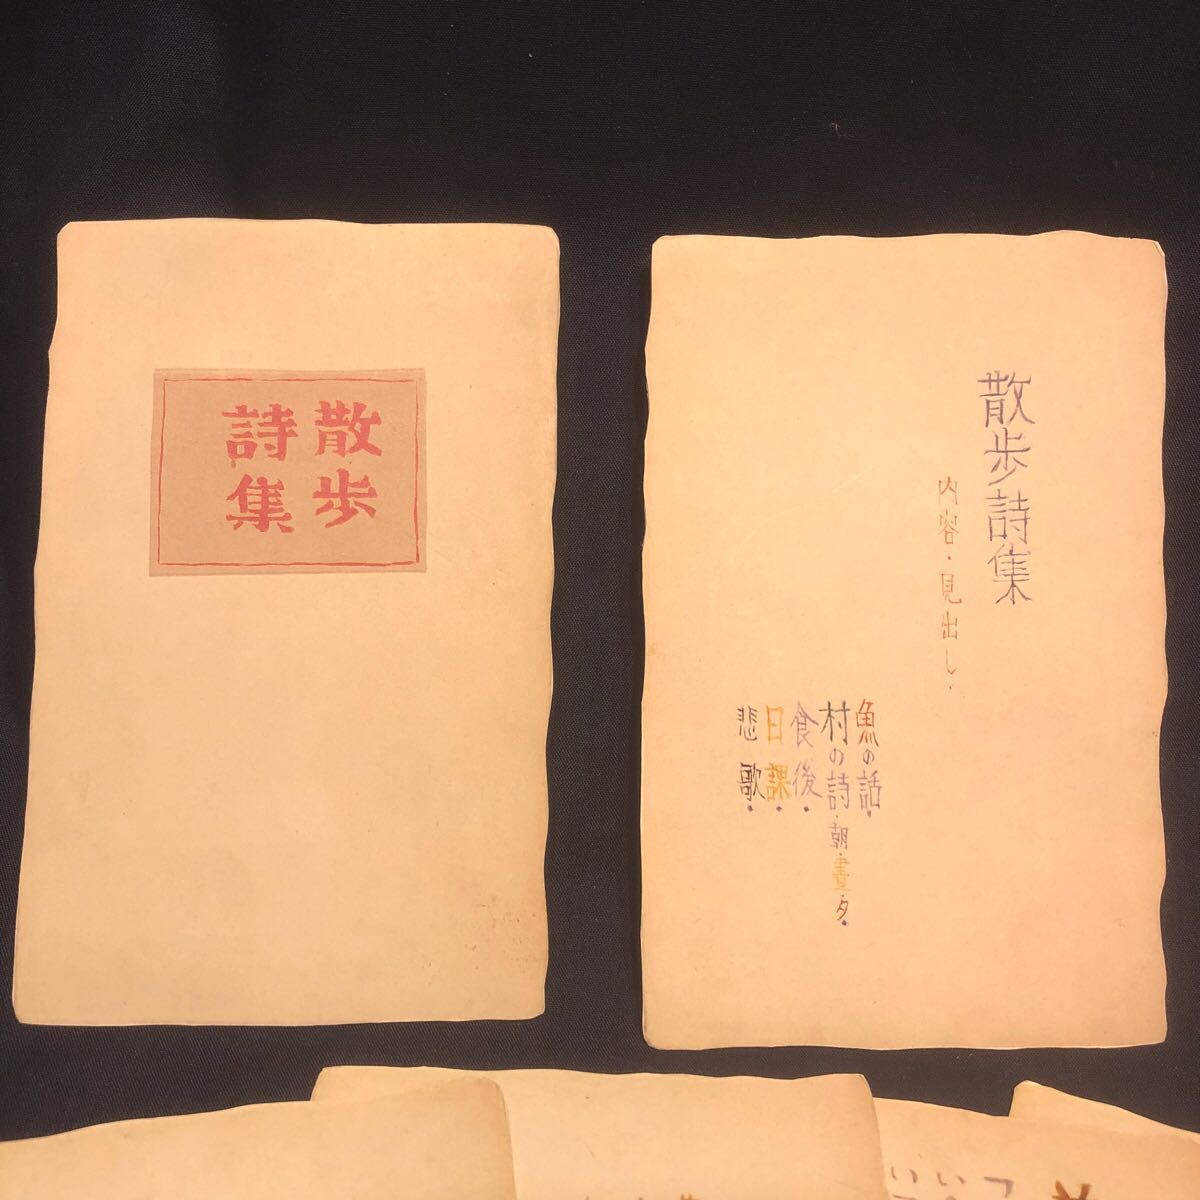 散歩
詩集
散歩詩集
内容・見出し.
魚の話.
村の詩.朝.晝.夕.
食後.
日課.
悲歌.